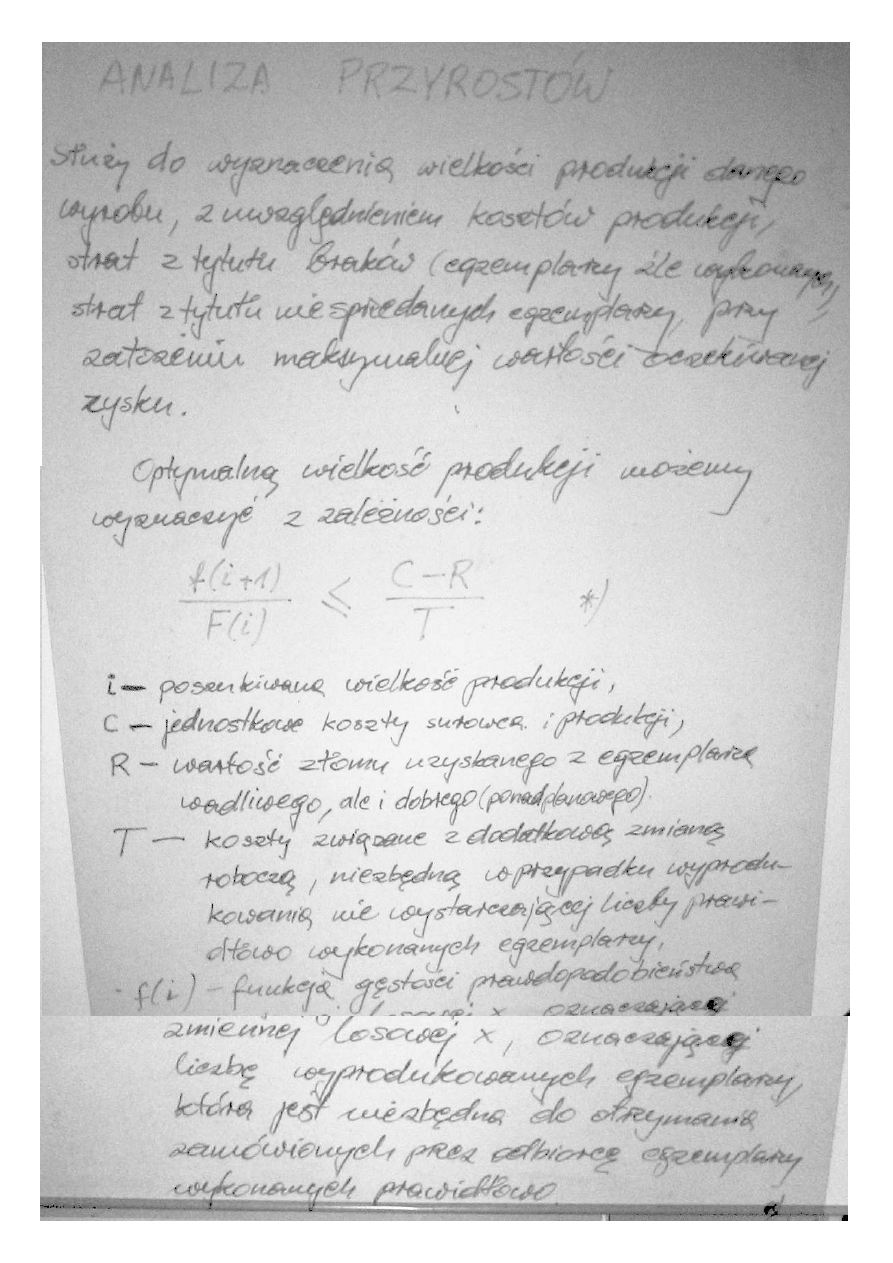 ANALIZA PRZYROSTÓW
Służy do wyznaczenia wielkości produkcji danego
wyrobu, z uwzględnieniem kosztów produkcji,
strat z tytułu braków (egzemplarzy źle wykonanych),
strat z tytułu niesprzedanych egzemplarzy, przy
założeniu maksymalnej wartości oczekiwanej
zysku.
Optymalną wielkość produkcji możemy
wyznaczyć z zależności:
f(i+1)/F(i) ≤ (C-R)/T *)
i — poszukiwana wielkość produkcji,
C — jednostkowe koszty surowca i produkcji,
R — wartość złomu uzyskanego z egzemplarza
wadliwego, ale i dobrego (ponadplanowego).
T — koszty związane z dodatkową zmianą
roboczą, niezbędną w przypadku wyprodu-
kowania nie wystarczającej liczby prawi-
dłowo wykonanych egzemplarzy,
f(i) — funkcja gęstości prawdopodobieństwa
zmiennej losowej x, oznaczającej
liczbę wyprodukowanych egzemplarzy,
która jest niezbędna do otrzymania
zamówionych przez odbiorcę egzemplarzy
wykonanych prawidłowo